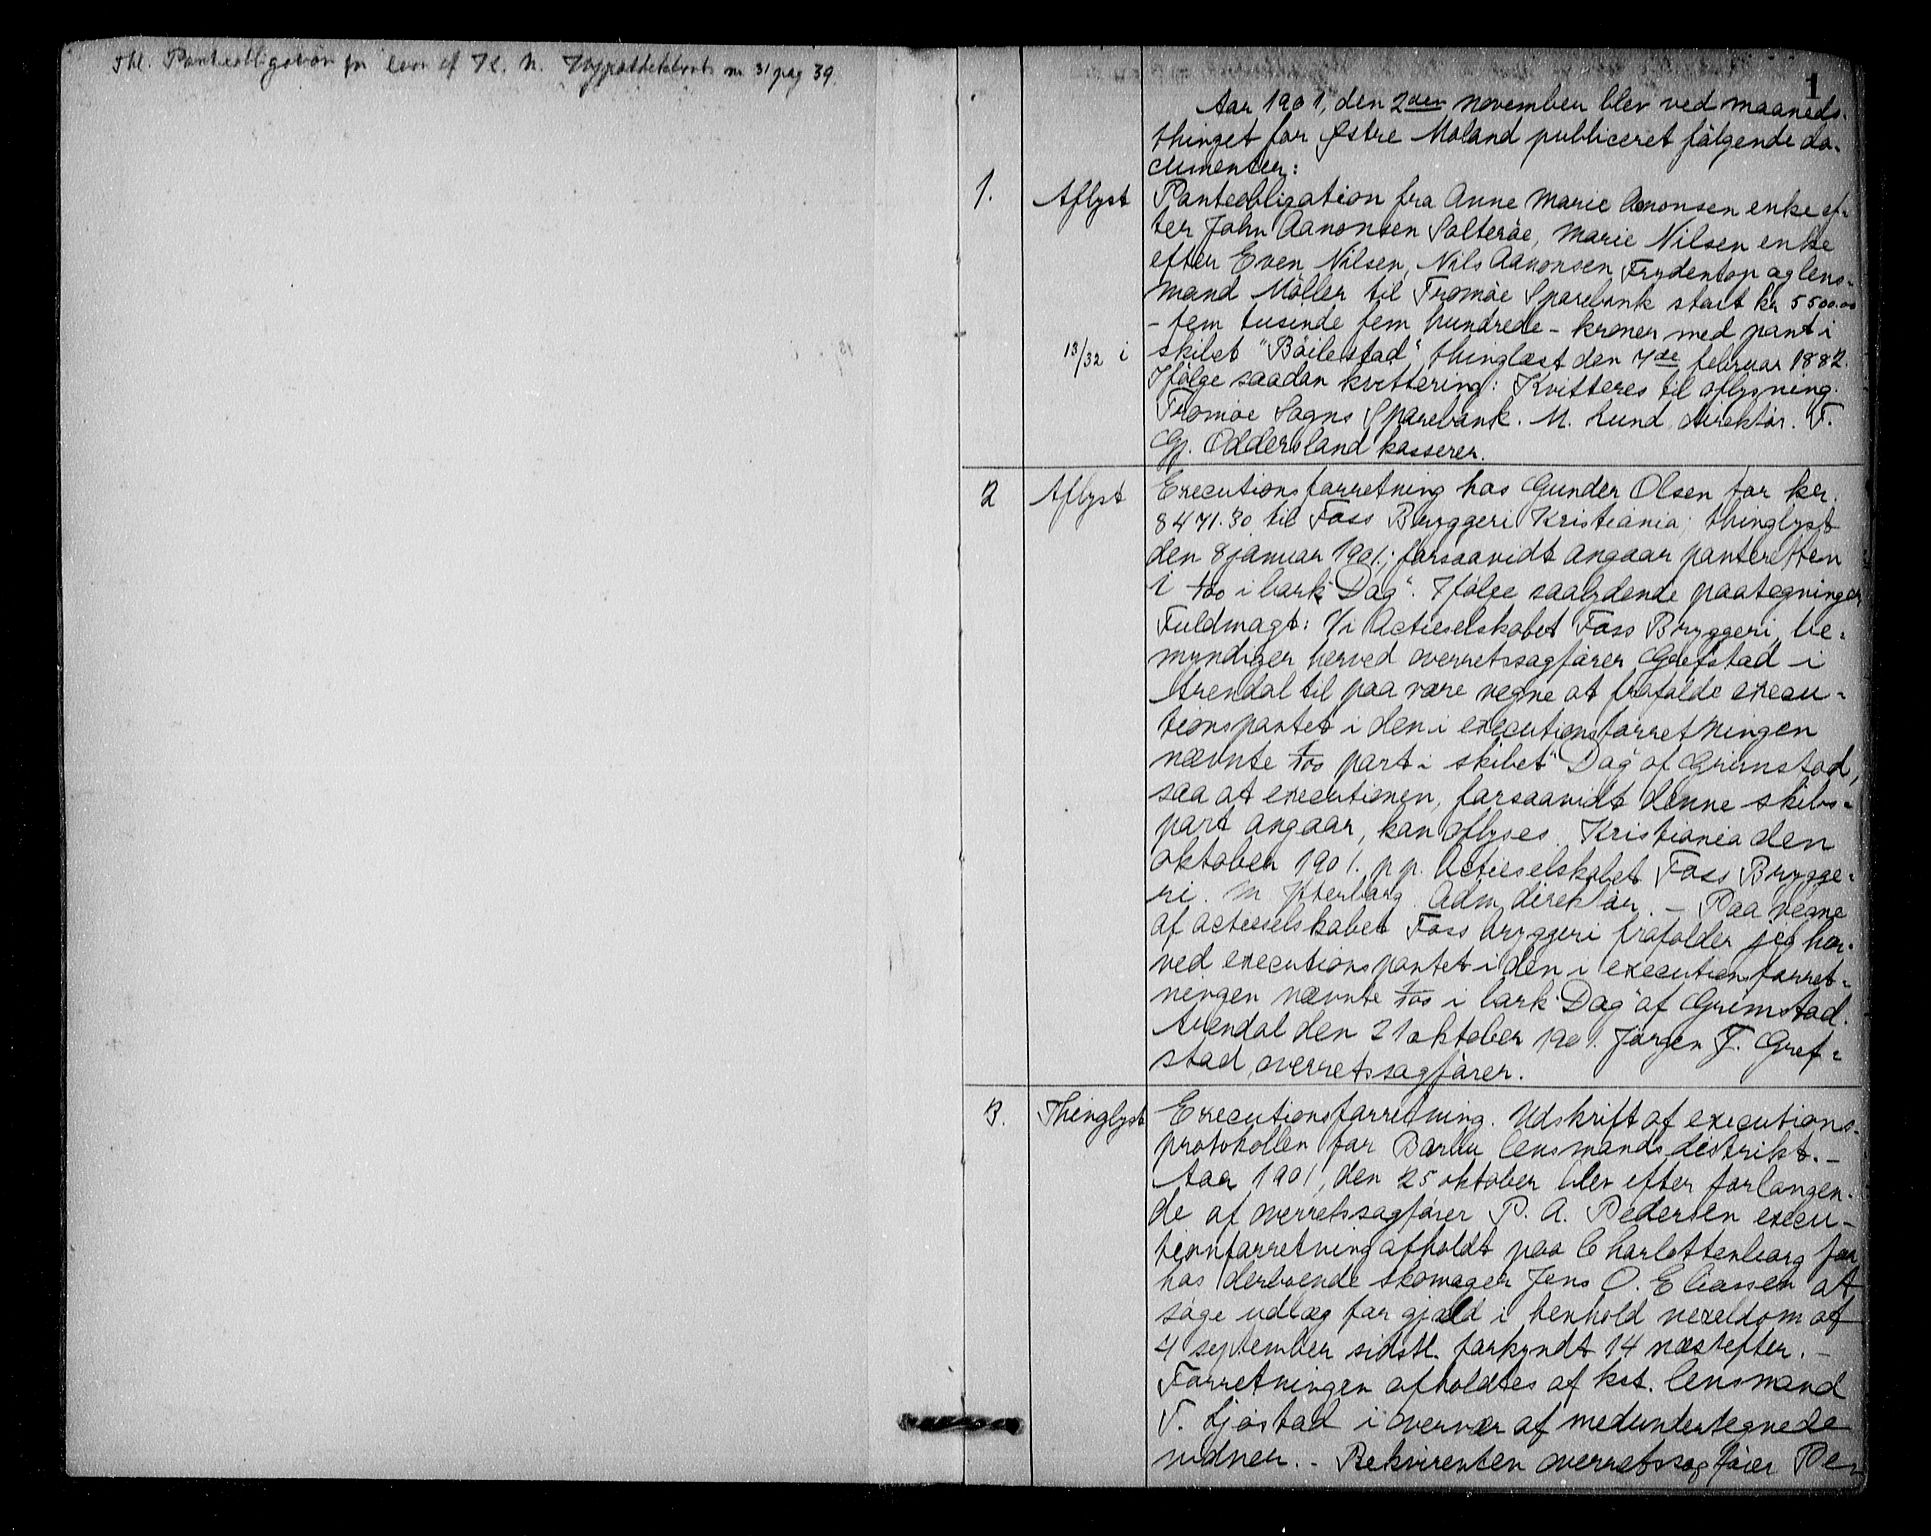 Thl. Panteobligation for laan af K. N. Hypothekbank no 31 pag 39.
1
Aar 1901, den 2den november blev ved maaneds-
thinget for Østre Moland publiceret følgende do-
cumenter:
1. Aflyst Panteobligation fra Anne Marie Aanonsen enke ef-
ter John Aanonsen Salterøe, Marie Nilsen enke
efter Even Nilsen, Nils Aanonsen Frydentop og lens-
mand Møller til Tromøe Sparebank stort kr 5500.00
- fem tusinde fem hundrede - kroner med pant i
13/32 i skibet "Bøilestad", thinglæst den 7de februar 1882.
Ifølge saadan kvittering: Kvitteres til aflysning.
Tromøe Sogns Sparebank. M. Lund direktør. T.
Gj. Oddersland kasserer.
2 Aflyst Executionsforretning hos Gunder Olsen for kr.
8471.30 til Foss Bryggeri Kristiania; thinglyst
den 8 januar 1901; forsaavidt angaar panteretten
i 1/100 i bark "Dag". Ifølge saalydende paategninger
Fuldmagt: Vi Actieselskabet Foss Bryggeri be-
myndiger herved overretssagfører Grefstad i
Arendal til paa vore vegne at frafalde execu-
tionspantet i den i executionsforretningen
nævnte 1/100 part i skibet "Dag" af Grimstad,
saa at executionen, forsaavidt denne skibs-
part angaar, kan aflyses. Kristiania den
oktober 1901. p.p. Actieselskabet Foss Brygge-
ri. M Ytterborg. Adm. direktør. - Paa vegne
af actieselskabet Foss bryggeri frafalder jeg her-
ved executionspantet i den i executionsforret-
ningen nævnte 1/100 i bark "Dag" af Grimstad.
Arendal den 21 oktober 1901. Jørgen F. Gref-
stad, overretssagfører.
3. Thinglyst Executionsforretning. Udskrift af executions-
protokollen for Barbu lensmandsdistrikt. -
Aar 1901, den 25 oktober blev efter forlangen-
de af overretssagfører P. A. Pedersen execu-
tionforretning afholdt paa Charlottenborg for
hos derboende skomager Jens O. Eliassen at
søge udlæg for gjæld i henhold vexeldom af
4 september sidstl. forkyndt 14 næstefter. -
Forretningen afholdtes af kst. lensmand
T. Ljøstad i overvær af medundertegnede
vidner. - Rekvirenten overretssagfører Pe-